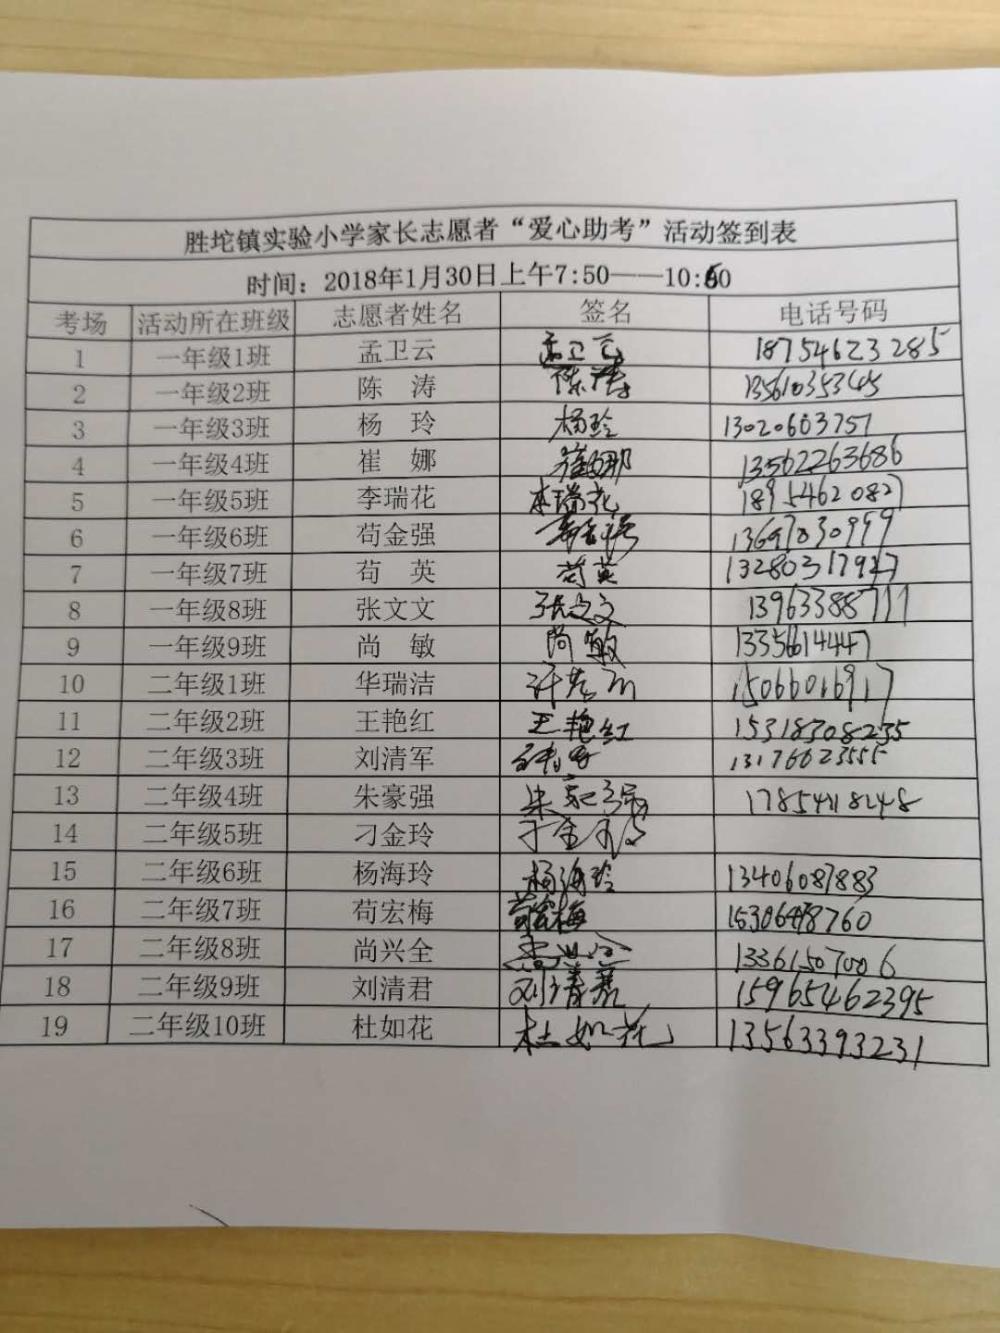 胜坨镇实验小学家长志愿者“爱心助考”活动签到表
时间：2018年1月30日上午7:50——10:50
考场 活动所在班级 志愿者姓名 签名 电话号码
1 一年级1班 孟卫云 孟卫云 18754623285
2 一年级2班 陈 涛 陈涛 13561035345
3 一年级3班 杨 玲 杨玲 13020603757
4 一年级4班 崔 娜 崔娜 13562263686
5 一年级5班 李瑞花 李瑞花 18954620827
6 一年级6班 苟金强 13697030999
7 一年级7班 苟 英 苟英 13280317927
8 一年级8班 张文文 张文文 13963388711
9 一年级9班 尚 敏 尚敏 13356614447
10 二年级1班 华瑞洁 15066016917
11 二年级2班 王艳红 王艳红 15318308235
12 二年级3班 刘清军 13176623555
13 二年级4班 朱豪强 朱豪强 17854118248
14 二年级5班 刁金玲 刁金玲
15 二年级6班 杨海玲 杨海玲 13406087883
16 二年级7班 苟宏梅 苟宏梅
17 二年级8班 尚兴全 尚兴全 13361507006
18 二年级9班 刘清君 刘清君 15965462395
19 二年级10班 杜如花 杜如花 13563393231